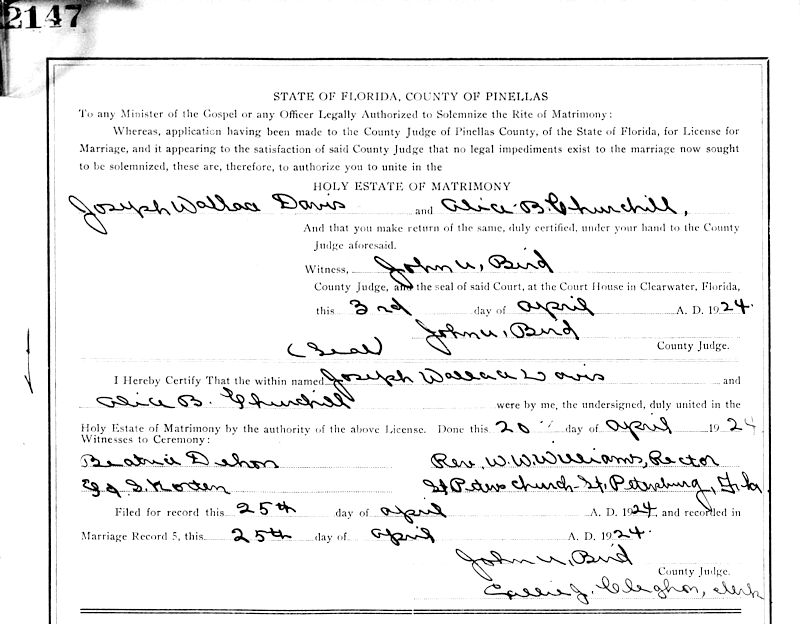 2147
STATE OF FLORIDA, COUNTY OF PINELLAS
To any Minister of the Gospel or any Officer Legally Authorized to Solemnize the Rite of Matrimony:
Whereas, application having been made to the County Judge of Pinellas County, of the State of Florida, for License for
Marriage, and it appearing to the satisfaction of said County Judge that no legal impediments exist to the marriage now sought
to be solemnized, these are, therefore, to authorize you to unite in the
HOLY ESTATE OF MATRIMONY
Joseph Wallace Davis and Alice B. Churchill,
And that you make return of the same, duly certified, under your hand to the County
Judge aforesaid.
Witness, John U. Bird
County Judge, and the seal of said Court, at the Court House in Clearwater, Florida,
this 3rd day of April A. D. 1924.
John U. Bird
(Seal) County Judge.
I Hereby Certify That the within named Joseph Wallace Davis and
Alice B. Churchill were by me, the undersigned, duly united in the
Holy Estate of Matrimony by the authority of the above License. Done this 20 " day of April 1924
Witnesses to Ceremony:
Beatrice Dehon Rev. W. W. Williams, Rector
S. Norten St Peters Church - St. Petersburg, Fla.
Filed for record this 25th day of April A. D. 1924, and recorded in
Marriage Record 5, this 25th day of April A. D. 1924.
John U. Bird
County Judge.
J. Cleghon, clerk